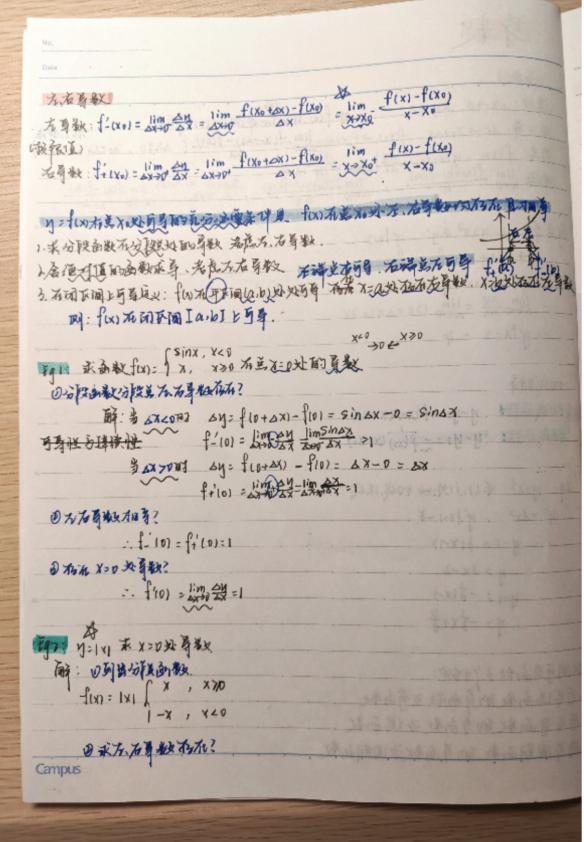 No.
Date
左右导数
左导数: f'₋(x₀) = lim Δx→0⁻ Δy/Δx = lim Δx→0⁻ f(x₀+Δx)-f(x₀)/Δx = lim x→x₀⁻ f(x)-f(x₀)/x-x₀
右导数: f'₊(x₀) = lim Δx→0⁺ Δy/Δx = lim Δx→0⁺ f(x₀+Δx)-f(x₀)/Δx = lim x→x₀⁺ f(x)-f(x₀)/x-x₀
y=f(x)在点x₀处可导的充分必要条件是 f(x)在点x₀处左、右导数均存在且相等
1. 求分段函数在分段处的导数 考虑左、右导数.
2. 含绝对值的函数求导, 考虑左右导数 右端点左可导
3. 在闭区间上可导定义: f(x)在开区间(a,b)处处可导 x=a处存在右导数, x=b处存在左导数
则: f(x)在闭区间[a,b]上可导.
x<0 →0← x≥0
Eg1: 求函数f(x)={ sinx, x<0
x, x≥0 在点x=0处的导数
①分段函数分段点左右导数存在?
解: 当Δx<0时 Δy=f(0+Δx)-f(0)=sinΔx-0=sinΔx
f'₋(0)=lim Δx→0⁻ Δy/Δx = lim sinΔx/Δx=1
可导性
当Δx>0时 Δy=f(0+Δx)-f(0)=Δx-0=Δx
f'₊(0)=lim Δx→0⁺ Δy/Δx=lim Δx→0⁺ Δx/Δx=1
②左右导数相等?
∴ f'₋(0)=f'₊(0)=1
③存在x=0处导数?
∴ f'(0)=lim Δx→0 Δy/Δx=1
Eg2: y=|x| 求x=0处导数
解: ①列出分段函数.
f(x)=|x| { x , x≥0
-x , x<0
②求左右导数存在?
Campus